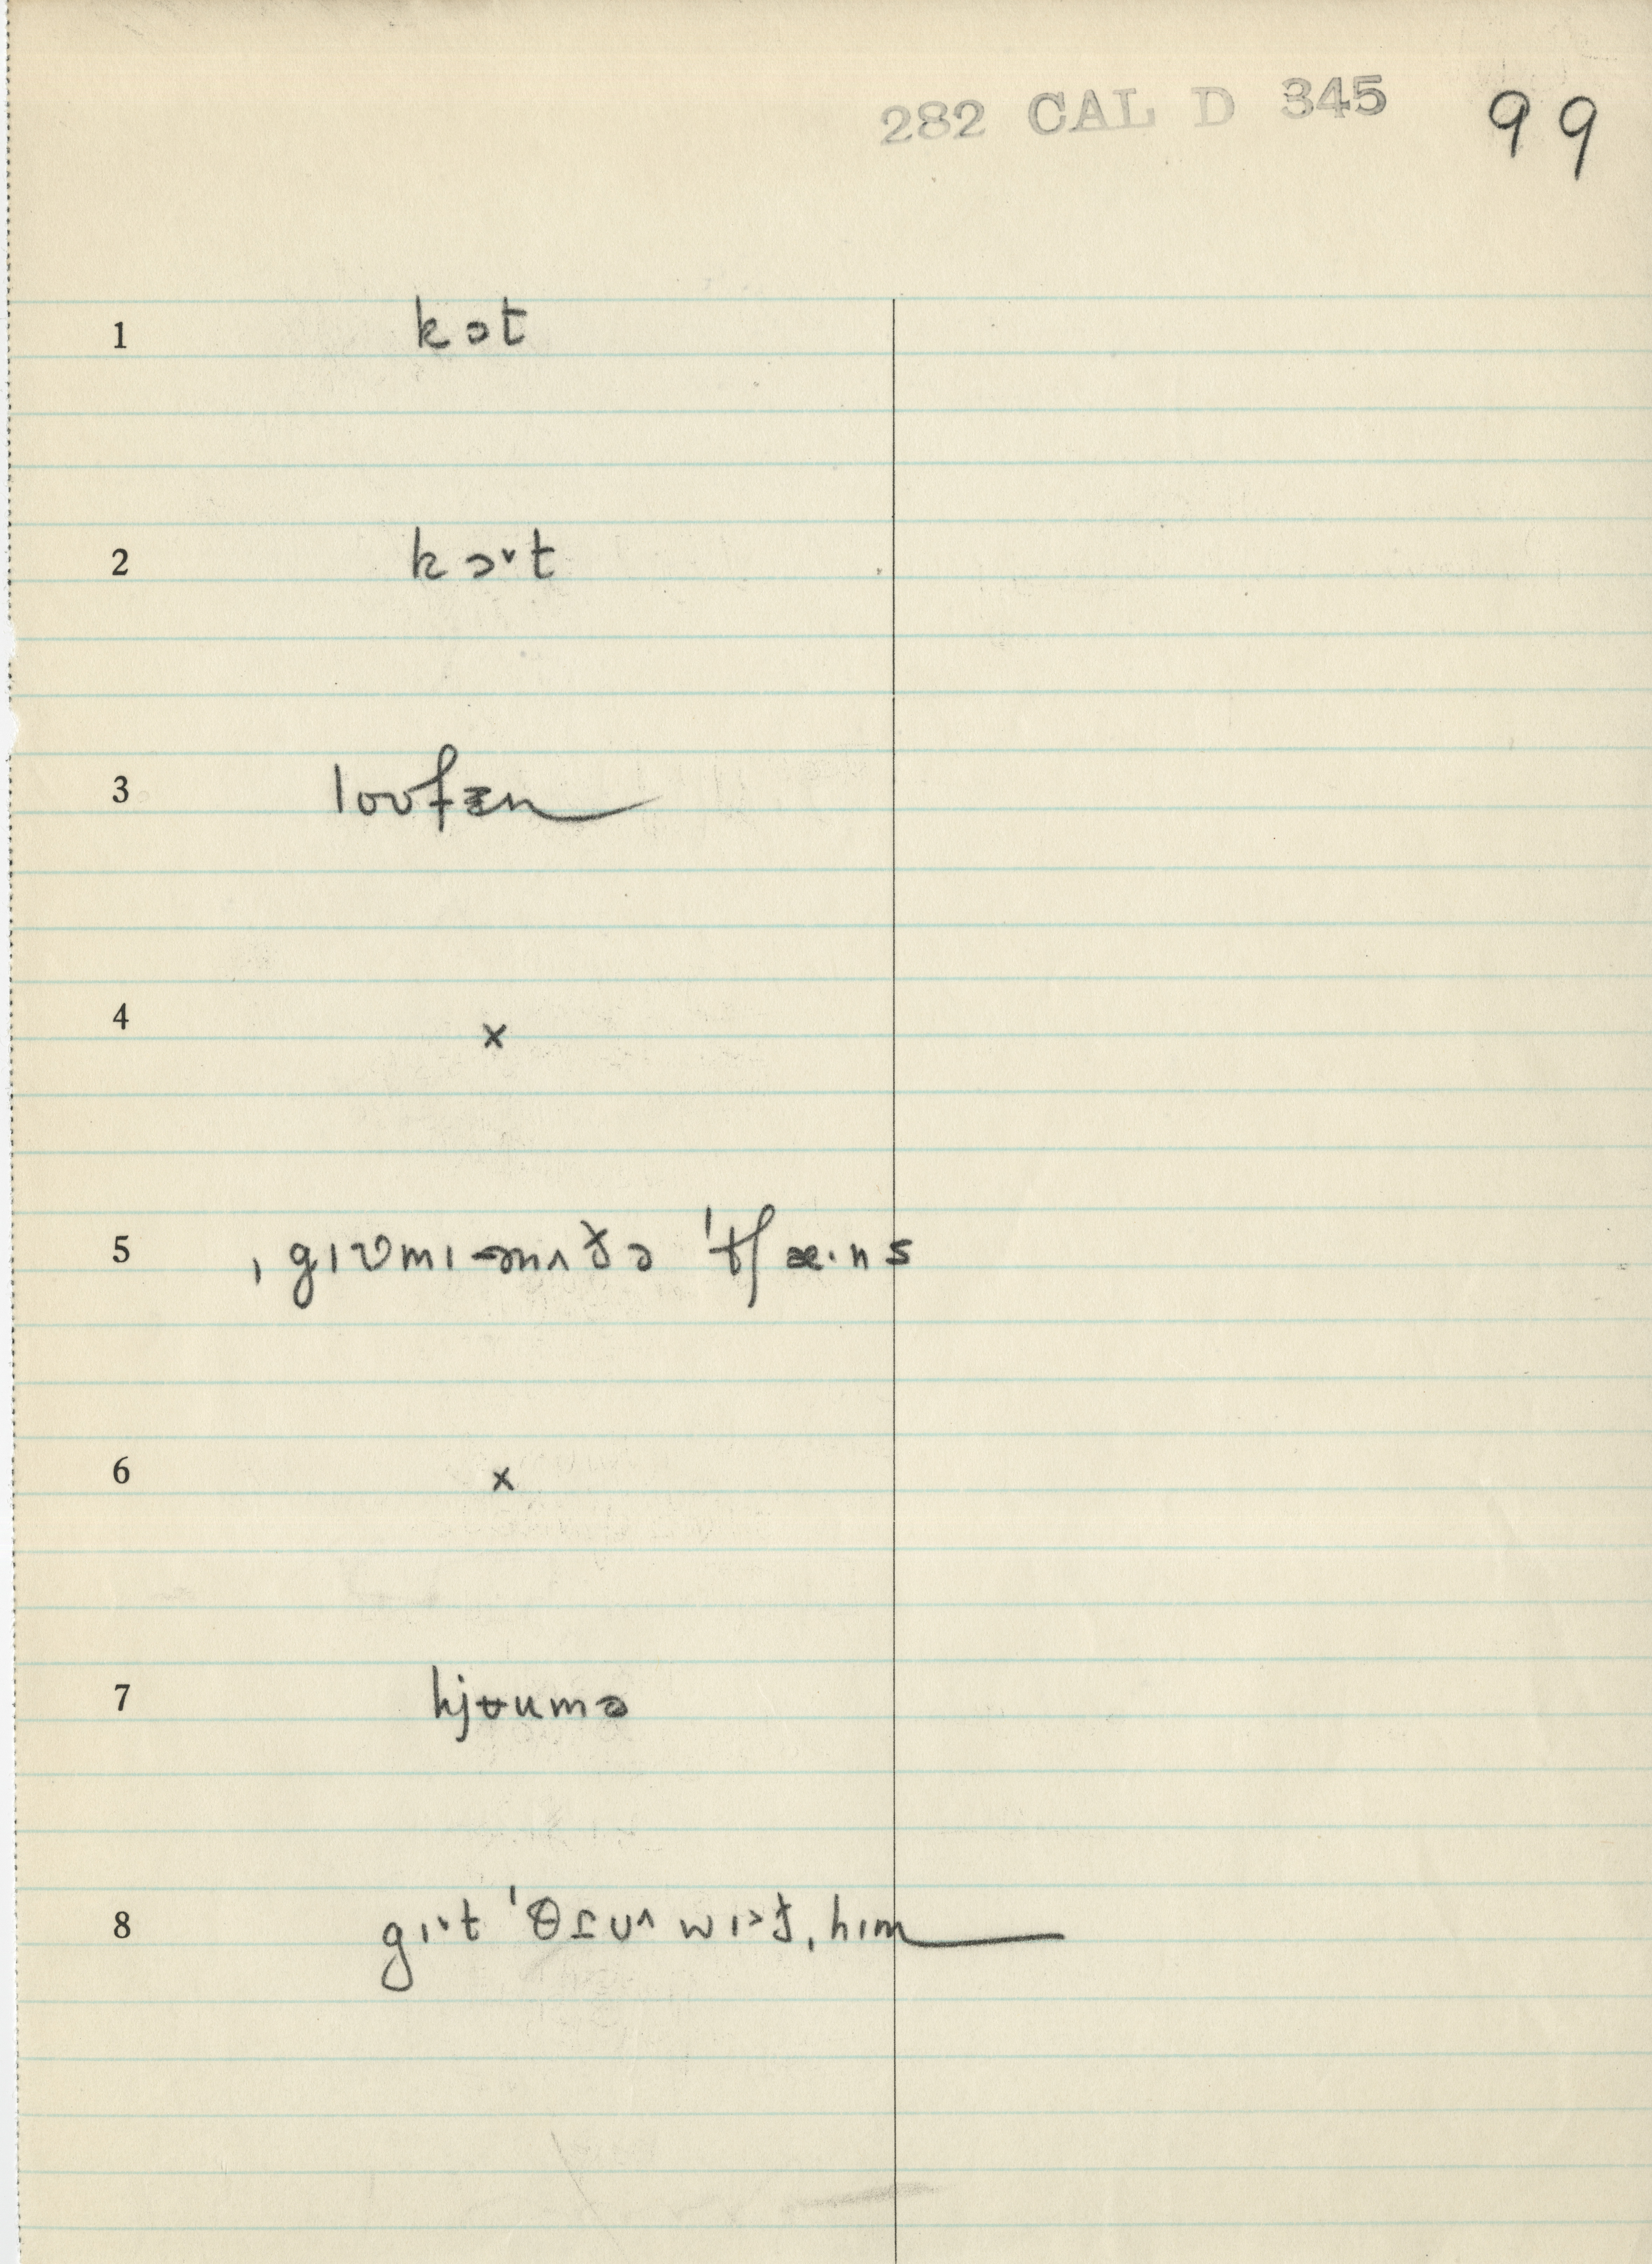 282 CAL D 345 99
1 kɔt
2 kɔ˞t
3 loʊfɚn
4 x
5 ˌgɪvmɪ ənʌðə ˈtʃæ·ns
6 x
7 hjʊumə
8 gɪ·t ˈθɾu^ wɪ˃ð ˌhɪm